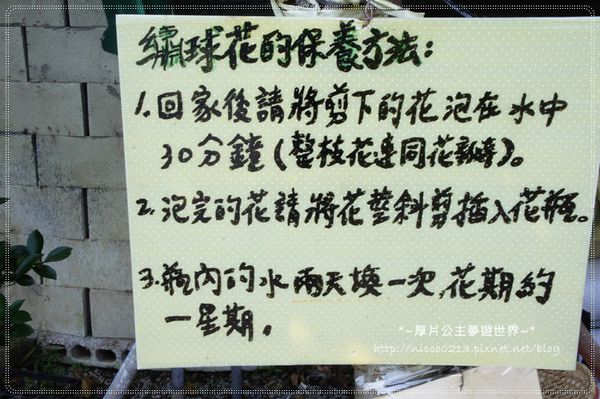 繡球花的保養方法:
1.回家後請將剪下的花泡在水中
30分鐘(整枝花連同花瓣)。
2.泡完的花請將花莖斜剪插入花瓶。
3.瓶內的水兩天換一次,花期約
一星期。
*~厚片公主夢遊世界~*
http://nicco0213.pixnet.net/blog